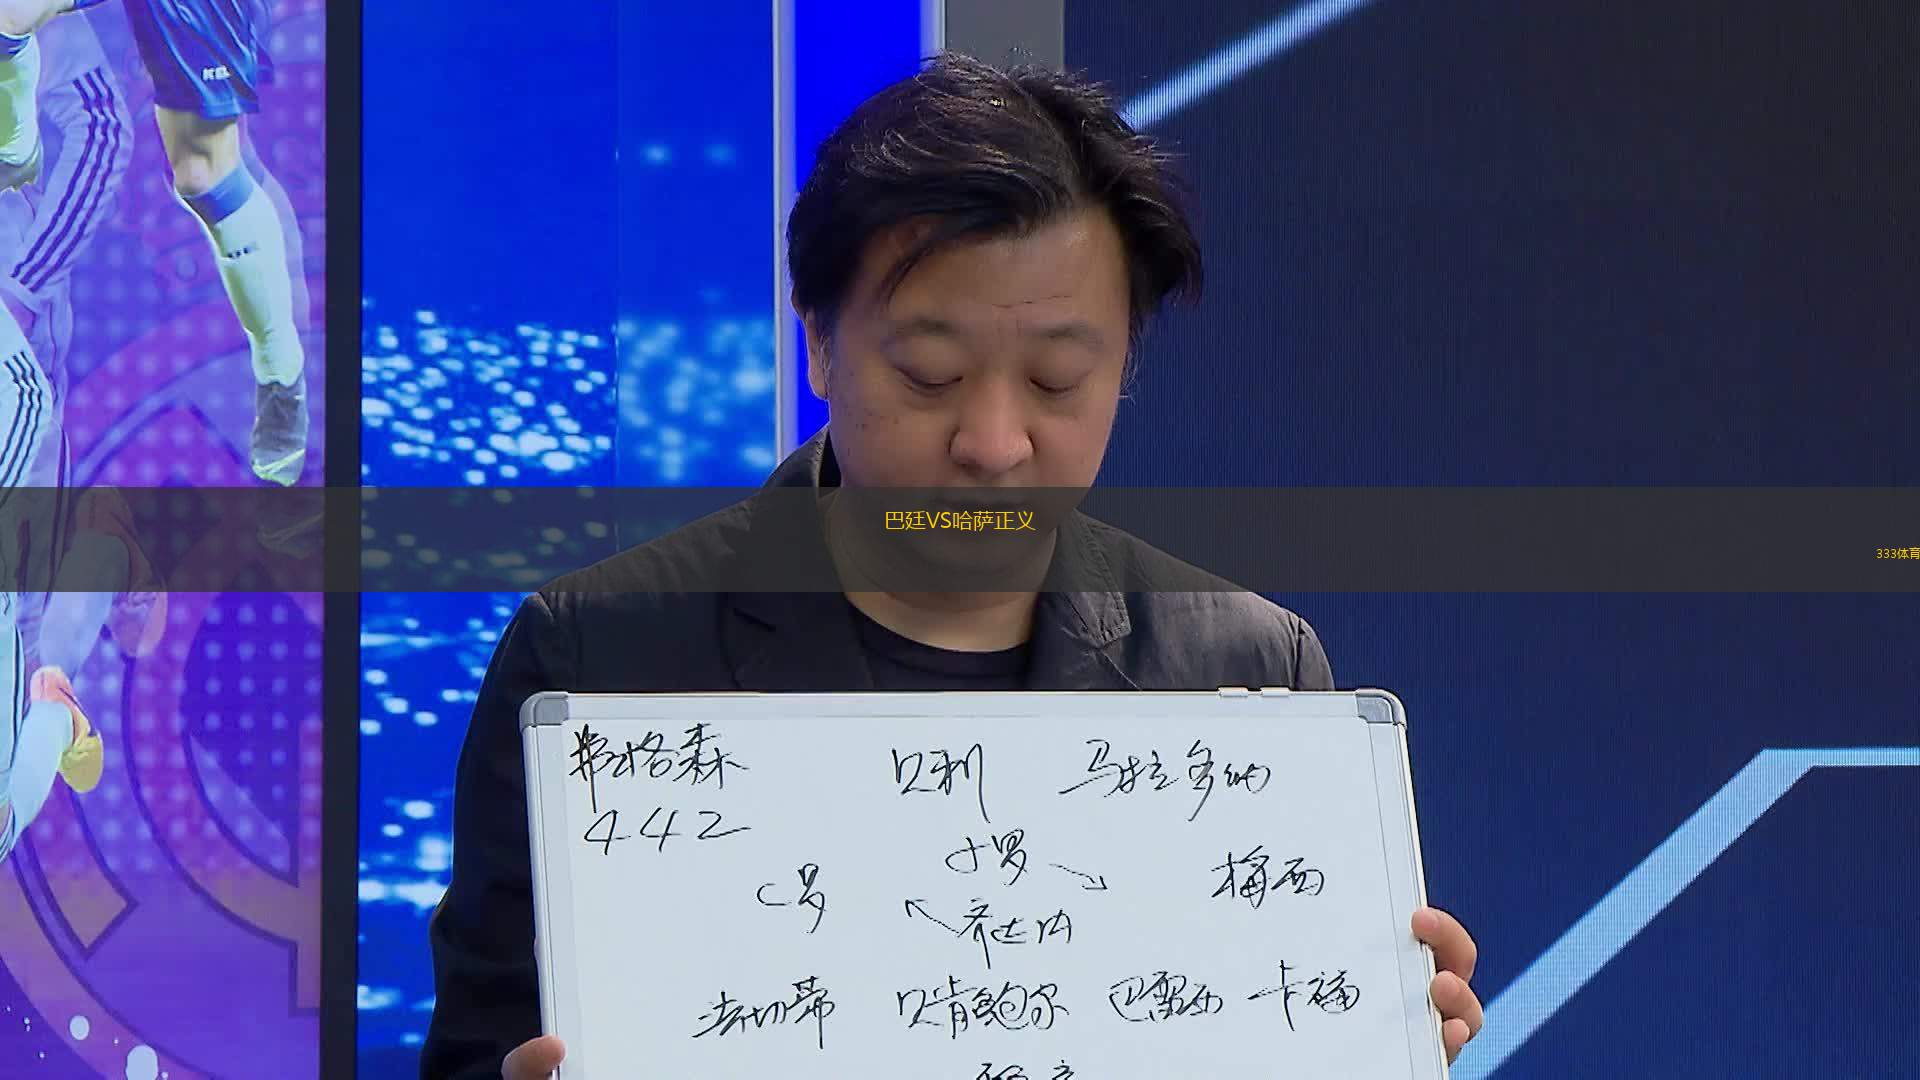 KEL
巴廷VS哈萨正义
333体育
弗格森 贝利 马拉多纳
442
C罗 小罗 梅西
齐达内
法切蒂 贝肯鲍尔 巴雷西 卡福